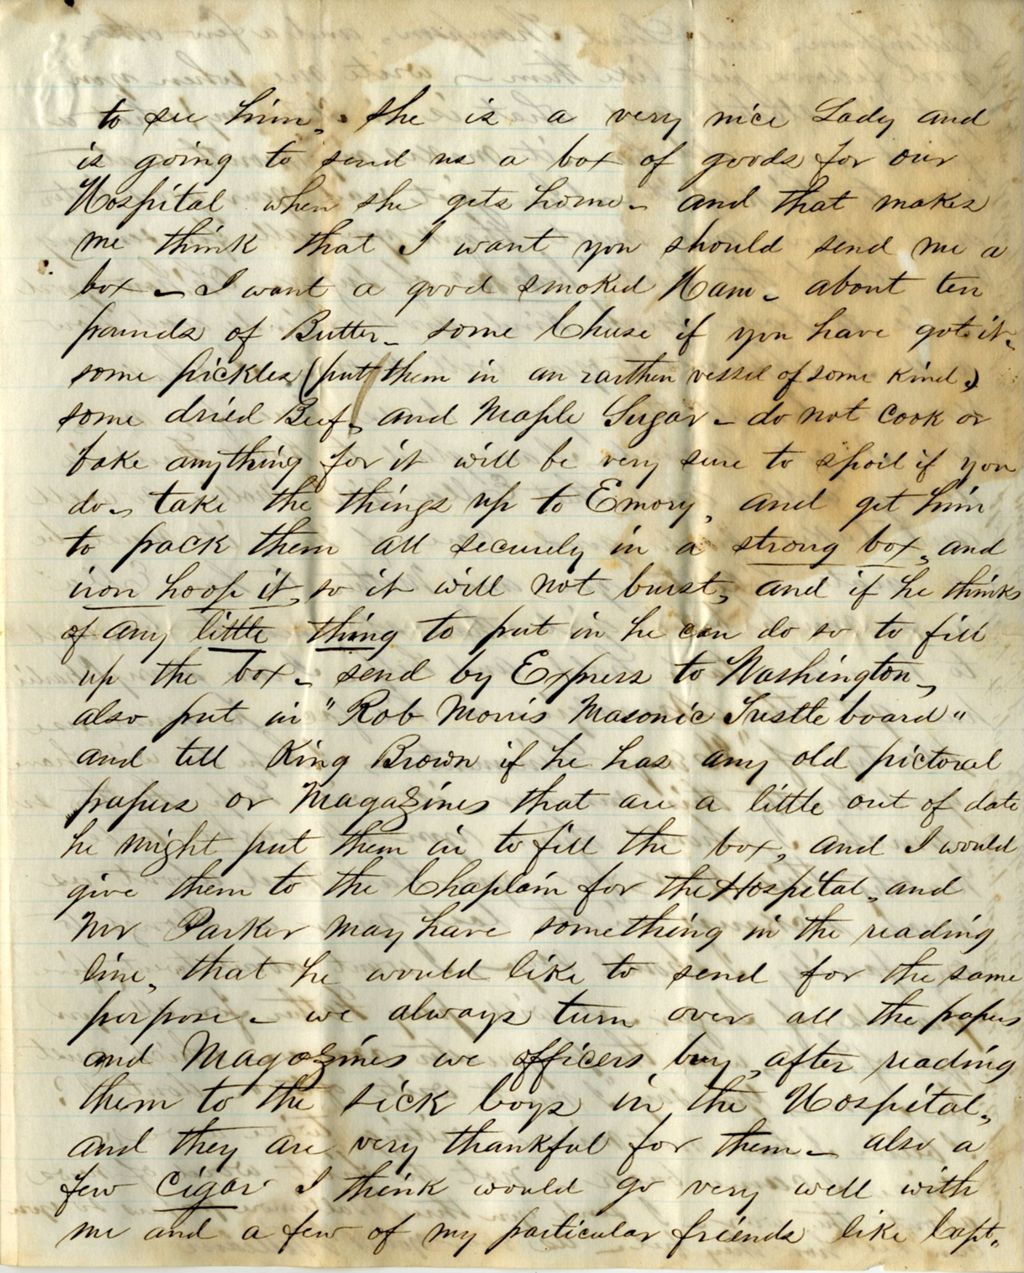 to see him. She is a very nice Lady and
is going to send us a box of goods for our
Hospital when she gets home - and that makes
me think that I want you should send me a
box - I want a good smoked Ham - about ten
pounds of Butter - some Chuse if you have got it -
some pickles (put them in an earthen vessel of some kind,)
some dried Beef, and Maple Sugar - do not cook or
bake anything for it will be very sure to spoil if you
do - take the things up to Emory, and get him
to pack them all securely in a strong box, and
iron hoop it, so it will not burst, and if he thinks
of any little thing to put in he can do so to fill
up the box - send by Express to Washington,
also put in "Rob Morris Masonic Trustle board"
and tell King Brown if he has any old pictoral
papers or Magazines that are a little out of date
he might put them in to fill the box, and I would
give them to the Chaplain for the Hospital, and
Mr Parker may have something in the reading
line, that he would like to send for the same
purpose - we always turn over all the papers
and Magazines we officers buy, after reading
them to the sick boys in the Hospital,
and they are very thankful for them - also a
few cigar I think would go very well with
me and a few of my particular friends like Capt.